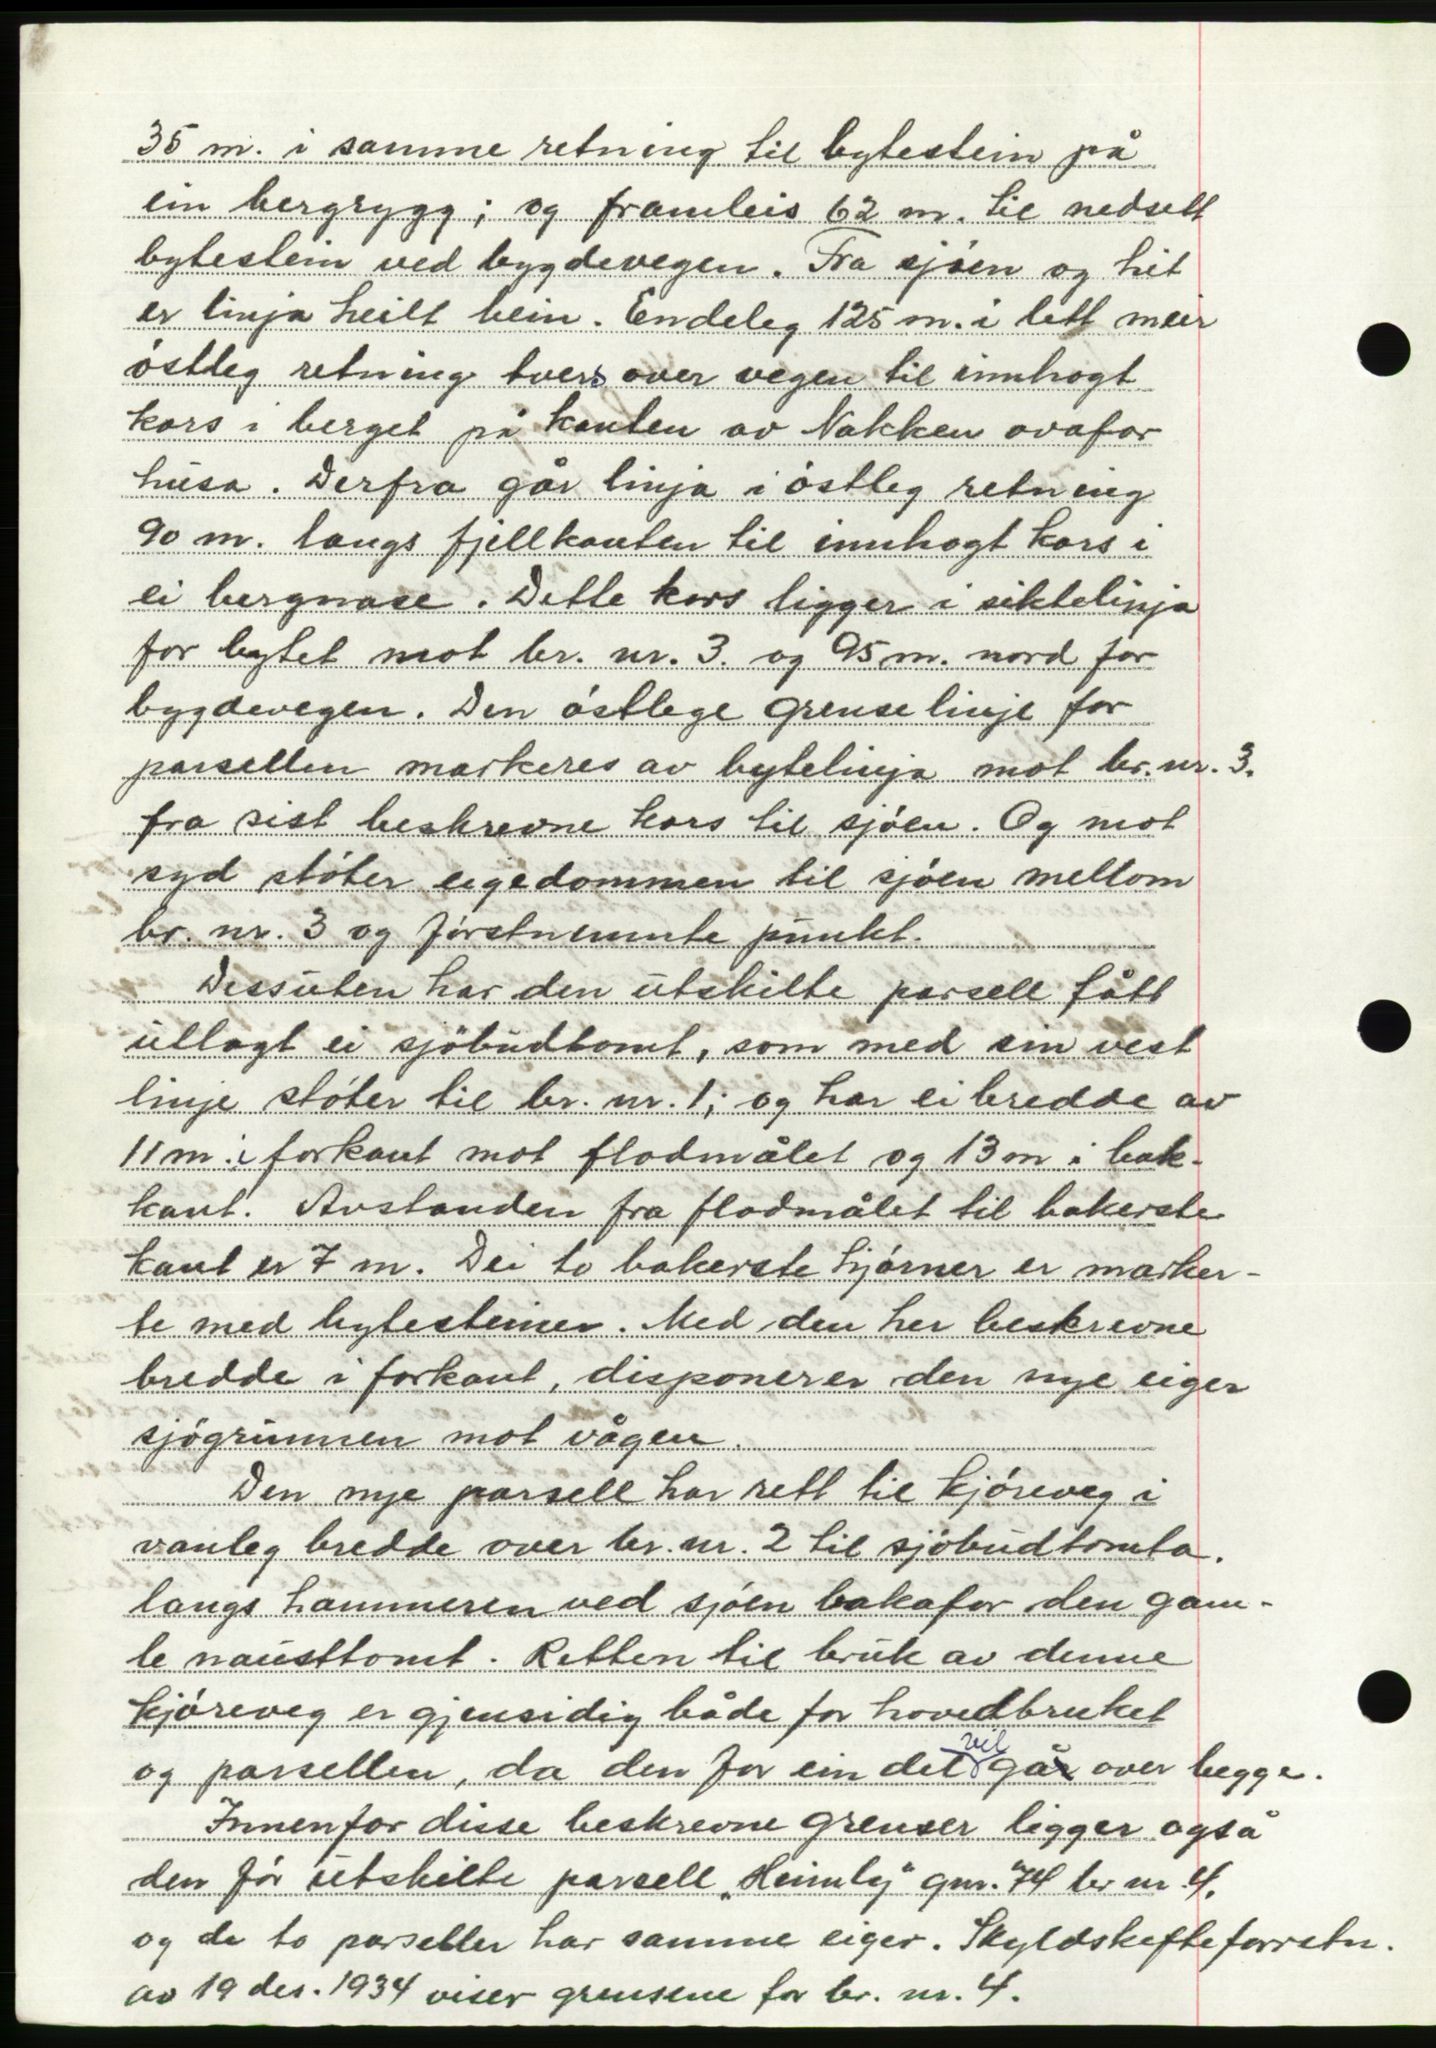 35 m. i samme retning til bytestein på
ein bergrygg; og framleis 62 m. til nedsett
bytestein ved bygdevegen. Fra sjóen og hit
er linja heilt bein. Endeleg 125 m. i lett meir
óstleg retning tvers over vegen til innhogt
kors i berget på kanten av Nakken ovafor
húsa. Derfra går linja i óstleg retning
90 m. langs fjellkanten til innhogt kors i
ei bergnase. Dette kors ligger i siktelinja
for bytet mot br. nr. 3. og 95 m. nord for
bygdevegen. Den óstlege grenselinje for
parsellen markeres av bytelinja mot br. nr. 3.
fra sist beskrevne kors til sjóen. Og mot
syd stóter eigedommen til sjóen mellom
br. nr. 3 og fórstnemnte púnkt.
Dessúten har den útskilte parsell fått
útlagt ei sjöbúdtomt, som med sin vest
linje stóter til br. nr. 1; og har ei bredde av
11 m. i forkant mot flodmålet og 13 m i bak-
kant. Avstanden fra flodmålet til bakerste
kant er 7 m. Dei to bakerste hjórner er marker-
te med bytesteiner. Med den her beskrevne
bredde i forkant, disponerer den nye eiger
sjógrúnnen mot vågen.
Den nye parsell har rett til kjóreveg i
vanleg bredde over br. nr. 2 til sjöbúdtomta.
langs hammeren ved sjóen bakafor den gam-
le naústtomt. Retten til brúk av denne
kjóreveg er gjensidig både for hovedbruket
og parsellen, da den for ein del vil går over begge.
Innenfor disse beskrevne grenser ligger også
den fór útskilte parsell „Heimly" gnr. 74 br nr. 4.
og de to parseller har samme eiger. Skyldskifteforretn.
av 19 des. 1934 viser grensene for br. nr. 4.